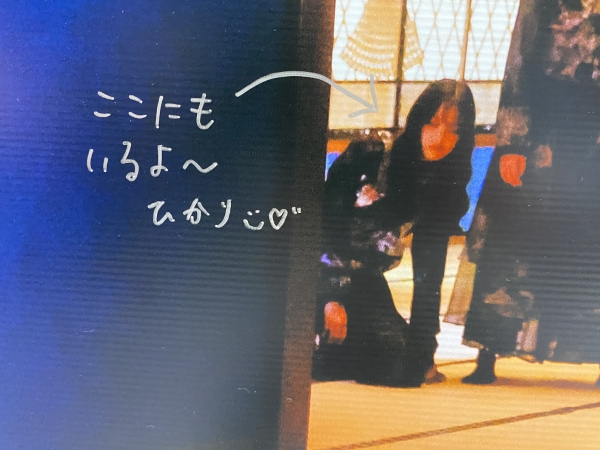 ここにも
いるよ〜
ひかり